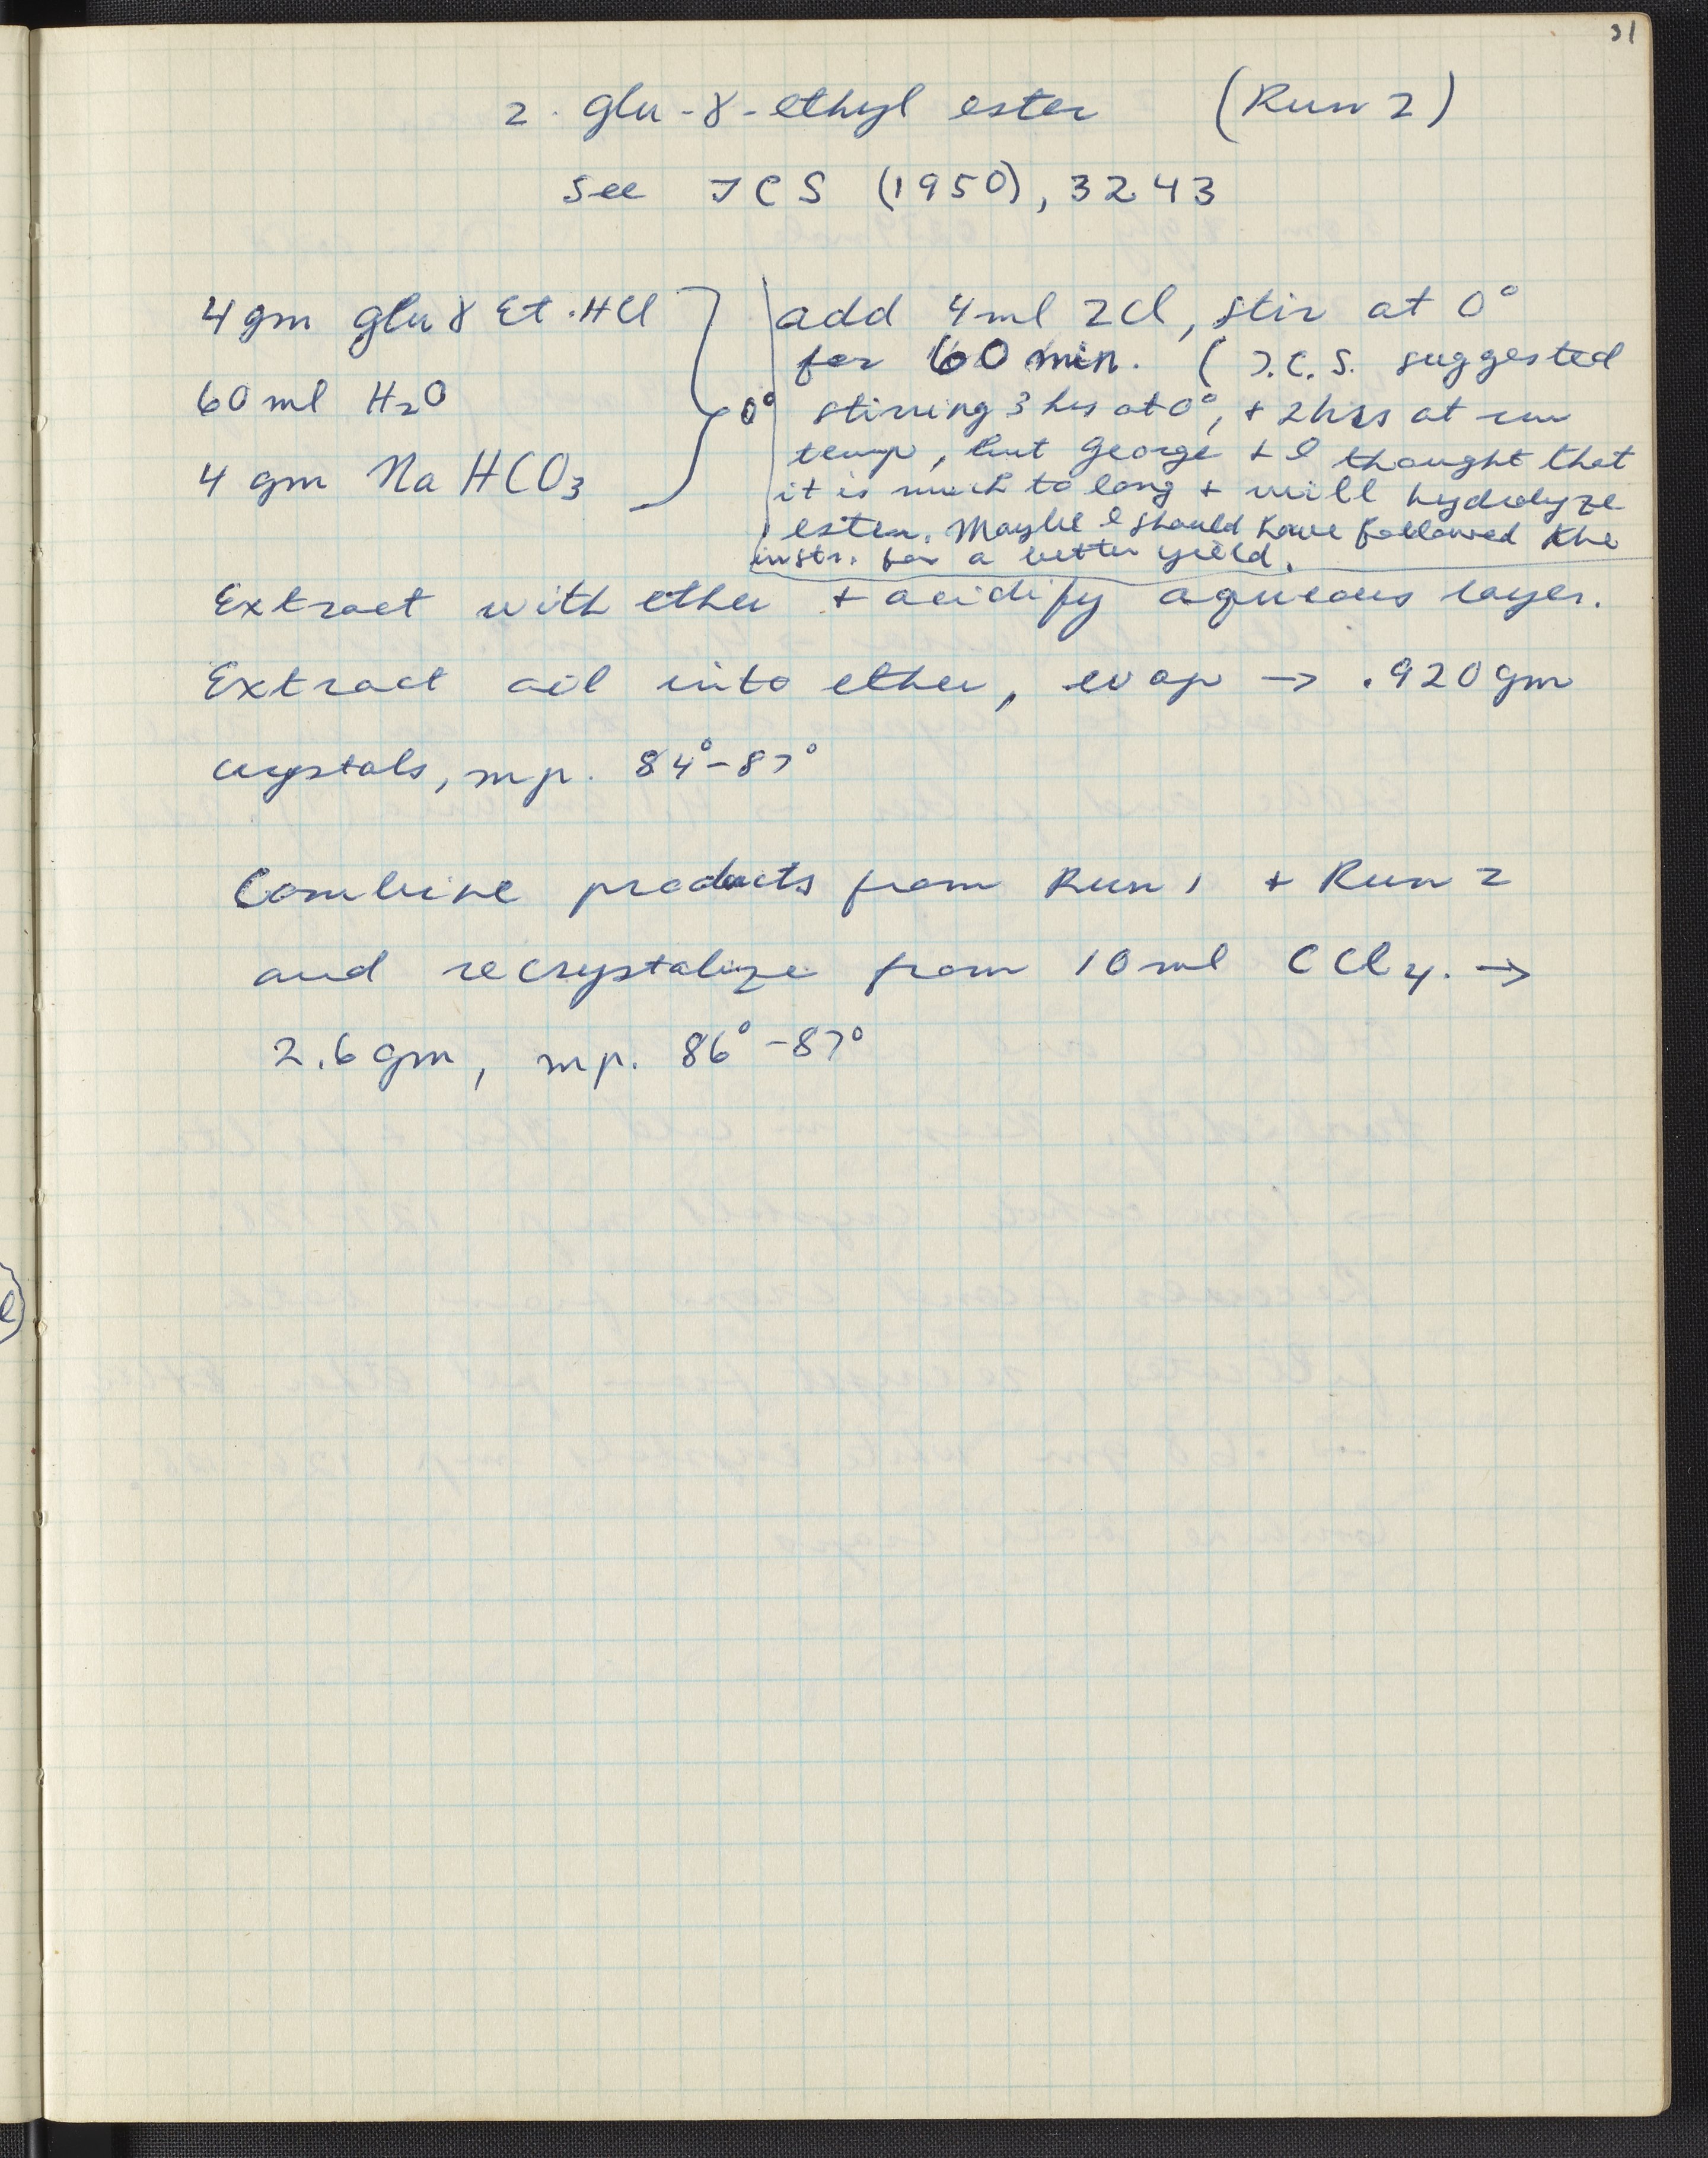 31
Z. glu-γ-ethyl ester (Run 2)
see JCS (1950), 3243
4 gm glu γ Et·HCl
60 ml H₂O
4 gm NaHCO₃
0°
add 4 ml ZCl, stir at 0°
for 60 min. (J.C.S. suggested
stirring 3 hrs at 0°, + 2 hrs at rm
temp, but George + I thought that
it is much to long + will hydrolyze
ester. Maybe I should have followed the
instr. for a better yield.
Extract with ether + acidify aqueous layer.
Extract oil into ether, evap → .920 gm
crystals, mp. 84°-87°
Combine products from Run 1 + Run 2
and recrystalize from 10 ml CCl₄. →
2.6 gm, mp. 86°-87°